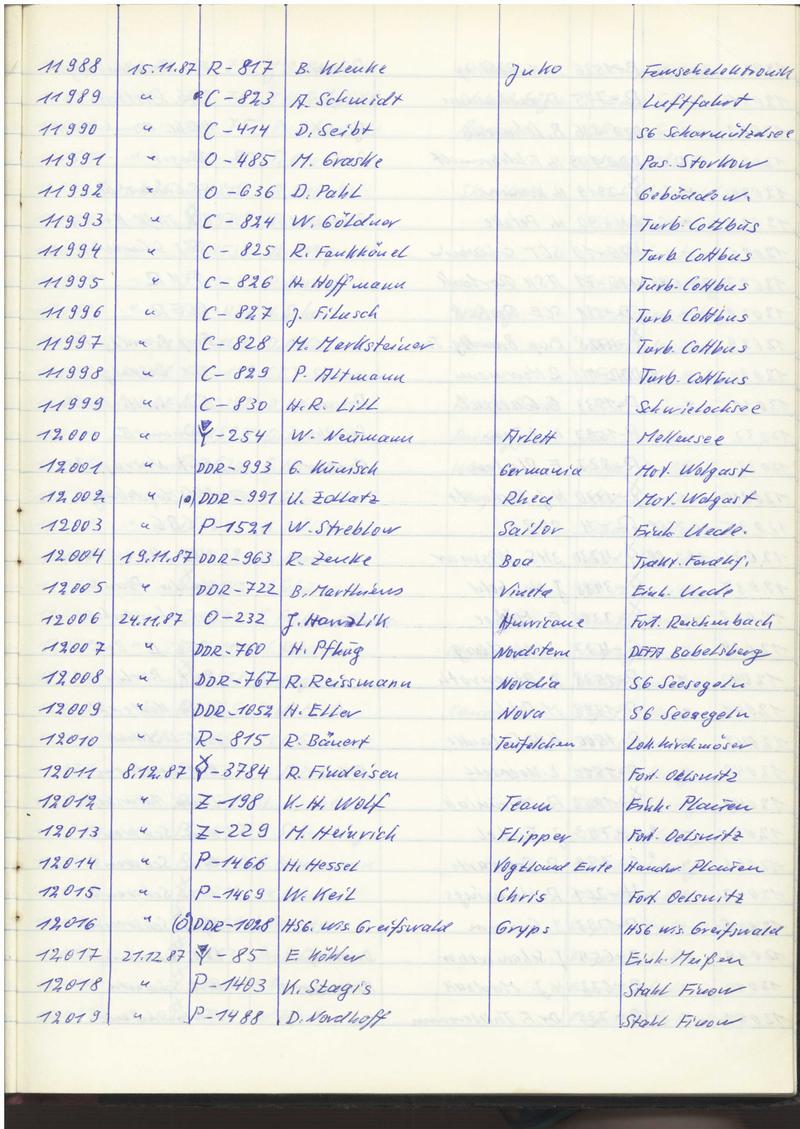 11988 15.11.87 R-817 B. Klenke Juko Fernsehelektronik
11989 " C-823 A. Schmidt Luftfahrt
11990 " C-414 D. Seibt SG Scharmützelsee
11991 " O-485 M. Graske Pas. Storkow
11992 " O-636 D. Pahl
11993 " C-824 W. Göldner Turb. Cottbus
11994 " C-825 R. Fankhänel Turb. Cottbus
11995 " C-826 H. Hoffmann Turb. Cottbus
11996 " C-827 J. Filusch Turb. Cottbus
11997 " C-828 M. Marksteiner Turb. Cottbus
11998 " C-829 P. Altmann Turb. Cottbus
11999 " C-830 H.R. Lill Schwielochsee
12000 " -254 W. Neumann Arlett Mellensee
12001 " DDR-993 G. Künisch Germania Mot. Wolgast
12002 " (o) DDR-991 U. Zollatz Rhea Mot. Wolgast
12003 " P-1521 W. Streblow Sailor Einh. Uede.
12004 19.11.87 DDR-963 R. Zenke Boa Trakt.
12005 " DDR-722 B. Vineta Einh. Uede
12006 24.11.87 O-232 J. Hanzlik Hurricane Fort. Reichenbach
12007 " DDR-760 H. Pflug Nordstern DEFA Babelsberg
12008 " DDR-767 R. Reissmann Nordia SG Seesegeln
12009 " DDR-1052 H. Eller Nova SG Seesegeln
12010 " R-815 R. Bänert Teufelchen Lok. Kirchmöser
12011 8.12.87 Y-3784 R. Findeisen Fort. Oelsnitz
12012 " Z-198 K-H. Wolf Team Einh. Plauen
12013 " Z-229 M. Heinrich Flipper Fort. Oelsnitz
12014 " P-1466 H. Hessel Vogtland Ente Handw. Plauen
12015 " P-1469 W. Keil Chris Fort. Oelsnitz
12016 " (o) DDR-1028 HSG. wis. Greifswald Gryps HSG wis. Greifswald
12017 21.12.87 -85 E. Köhler Einh. Meißen
12018 " P-1403 K. Stagis Stahl Finow
12019 " P-1488 D. Nordhoff Stahl Finow